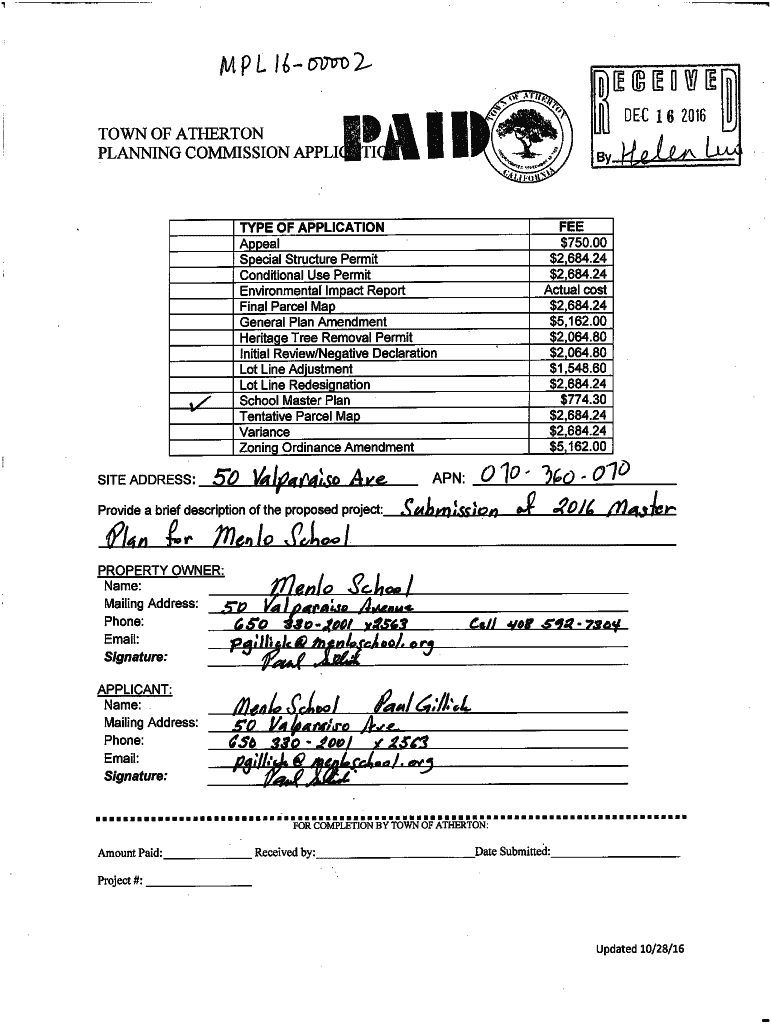 MPL 16-00002
RECEIVED
DEC 16 2016
By Helen
TOWN OF ATHERTON
PLANNING COMMISSION APPLICATION
PAID
TOWN OF ATHERTON
CALIFORNIA
TYPE OF APPLICATION FEE
Appeal $750.00
Special Structure Permit $2,684.24
Conditional Use Permit $2,684.24
Environmental Impact Report Actual cost
Final Parcel Map $2,684.24
General Plan Amendment $5,162.00
Heritage Tree Removal Permit $2,064.80
Initial Review/Negative Declaration $2,064.80
Lot Line Adjustment $1,548.60
Lot Line Redesignation $2,684.24
✓ School Master Plan $774.30
Tentative Parcel Map $2,684.24
Variance $2,684.24
Zoning Ordinance Amendment $5,162.00
SITE ADDRESS: 50 Valparaiso Ave APN: 070-360-070
Provide a brief description of the proposed project: Submission of 2016 Master
Plan for Menlo School
PROPERTY OWNER:
Name: Menlo School
Mailing Address: 50 Valparaiso Avenue
Phone: 650 330-2001 x2563 Cell 408 592-7304
Email: pgillick@menloschool.org
Signature: Paul Gillick
APPLICANT:
Name: Menlo School Paul Gillick
Mailing Address: 50 Valparaiso Ave
Phone: 650 330-2001 x 2563
Email: pgillick@menloschool.org
Signature: Paul Gillick
FOR COMPLETION BY TOWN OF ATHERTON:
Amount Paid: Received by: Date Submitted:
Project #:
Updated 10/28/16